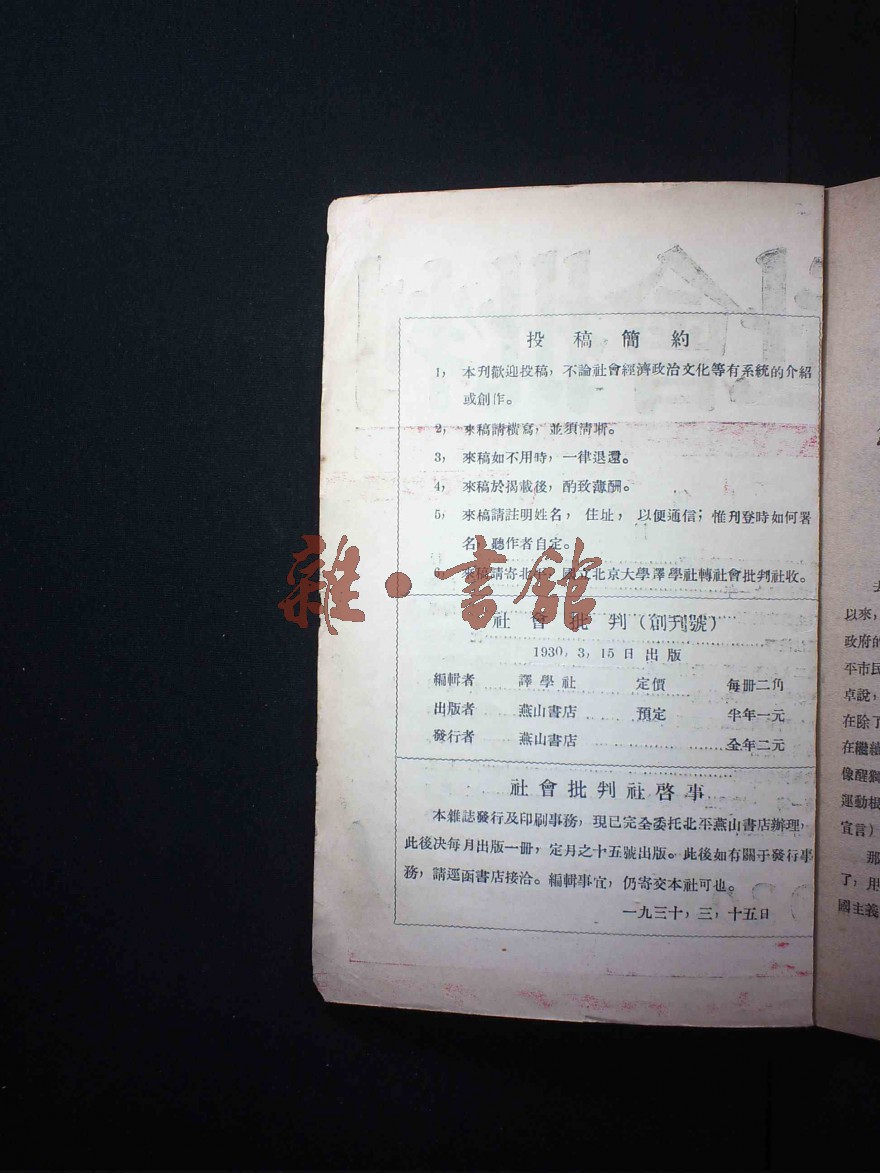 投稿簡約
1, 本刊歡迎投稿，不論社會經濟政治文化等有系統的介紹
或創作。
2, 來稿請橫寫，並須清晰。
3, 來稿如不用時，一律退還。
4, 來稿於揭載後，酌致薄酬。
5, 來稿請註明姓名，住址，以便通信；惟刊登時如何署
名，聽作者自定。
6, 來稿請寄北平，國立北京大學譯學社轉社會批判社收。
雜·書館
社會批判(創刊號)
1930, 3, 15日出版
編輯者 譯學社 定價 每冊二角
出版者 燕山書店 預定 半年一元
發行者 燕山書店 全年二元
社會批判社啓事
本雜誌發行及印刷事務，現已完全委托北平燕山書店辦理，
此後决每月出版一冊，定月之十五號出版。此後如有關于發行事
務，請逕函書店接洽。編輯事宜，仍寄交本社可也。
一九三十，三，十五日
以來，
政府的
平市民
卓說，
在除了
在繼續
像醒獅
運動根
宣言)
那
了，用
國主義